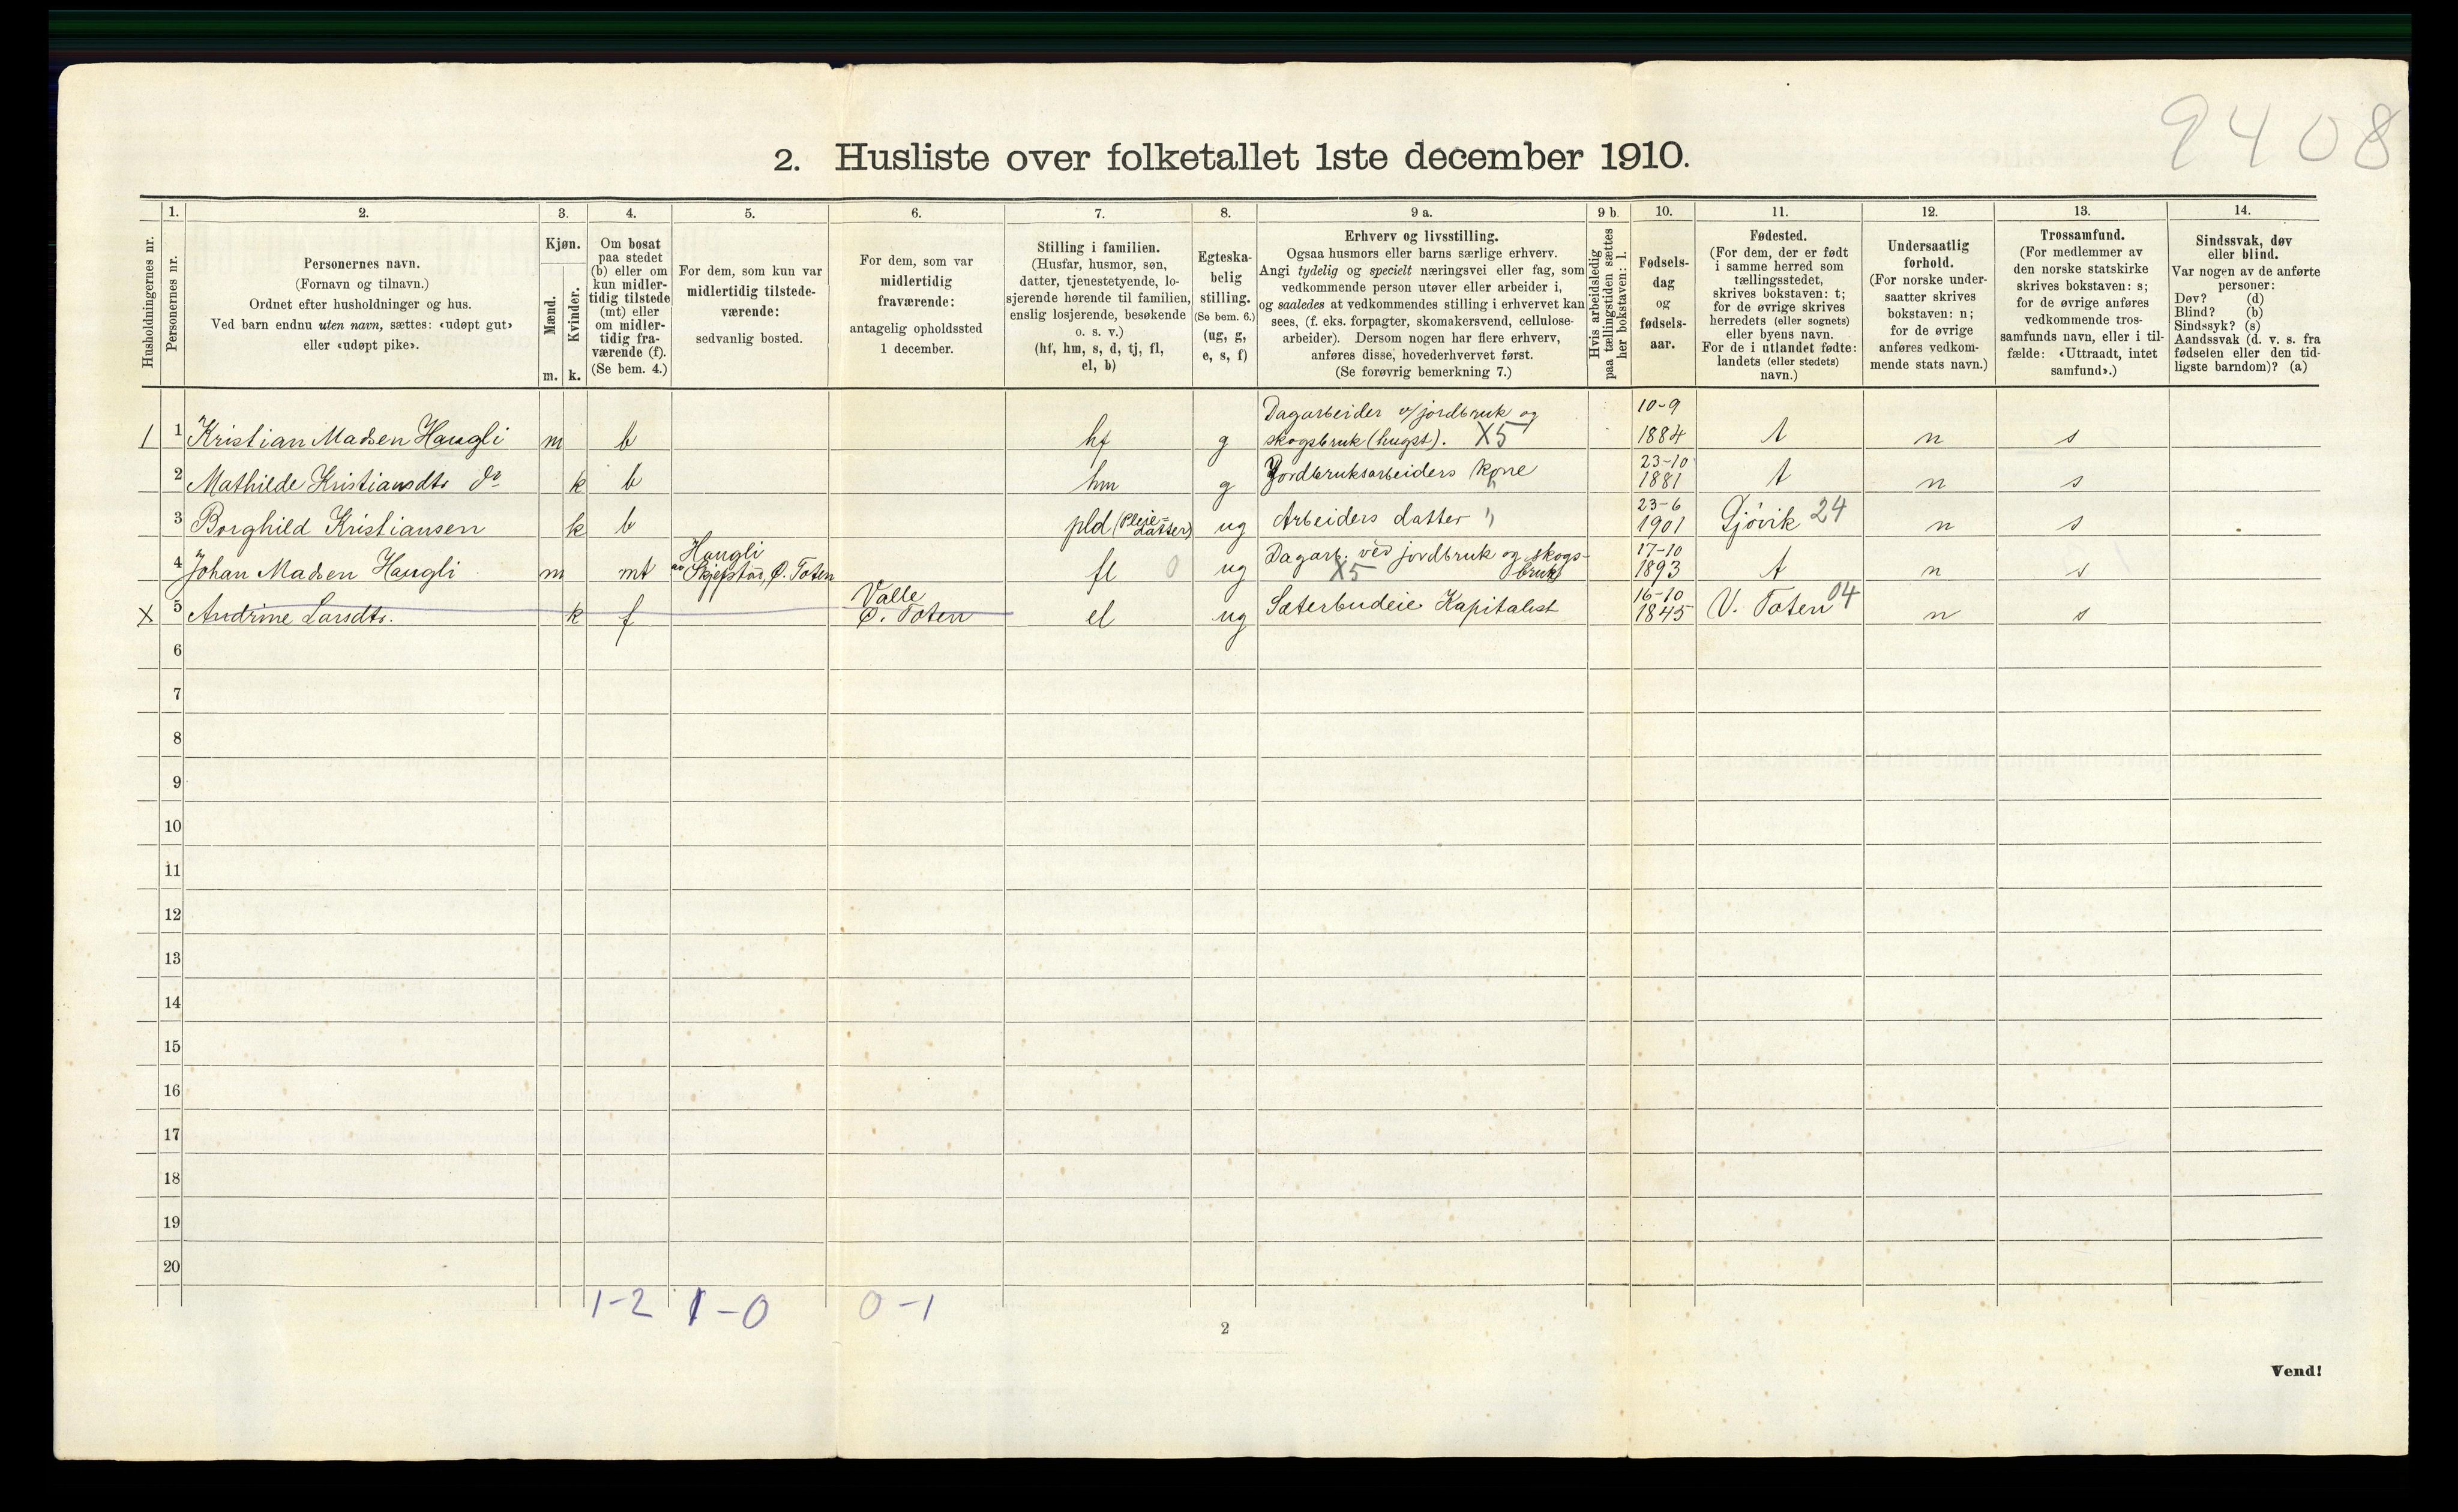 9408
2. Husliste over folketallet 1ste december 1910.
Husholdningernes nr.
1.
Personernes nr.
2.
Personernes navn.
(Fornavn og tilnavn.)
Ordnet efter husholdninger og hus.
Ved barn endnu uten navn, sættes: «udøpt gut»
eller «udøpt pike».
3.
Kjøn.
Mænd.
Kvinder.
m. k.
4.
Om bosat
paa stedet
(b) eller om
kun midler-
tidig tilstede
(mt) eller
om midler-
tidig fra-
værende (f).
(Se bem. 4.)
5.
For dem, som kun var
midlertidig tilstede-
værende:
sedvanlig bosted.
6.
For dem, som var
midlertidig
fraværende:
antagelig opholdssted
1 december.
7.
Stilling i familien.
(Husfar, husmor, søn,
datter, tjenestetyende, lo-
sjerende hørende til familien,
enslig losjerende, besøkende
o. s. v.)
(hf, hm, s, d, tj, fl,
el, b)
8.
Egteska-
belig
stilling.
(Se bem. 6.)
(ug, g,
e, s, f)
9 a.
Erhverv og livsstilling.
Ogsaa husmors eller barns særlige erhverv.
Angi tydelig og specielt næringsvei eller fag, som
vedkommende person utøver eller arbeider i,
og saaledes at vedkommendes stilling i erhvervet kan
sees, (f. eks. forpagter, skomakersvend, cellulose-
arbeider). Dersom nogen har flere erhverv,
anføres disse, hovederhvervet først.
(Se forøvrig bemerkning 7.)
9 b.
Hvis arbeidsledig
paa tællingstiden sættes
her bokstaven: l.
10.
Fødsels-
dag
og
fødsels-
aar.
11.
Fødested.
(For dem, der er født
i samme herred som
tællingsstedet,
skrives bokstaven: t;
for de øvrige skrives
herredets (eller sognets)
eller byens navn.
For de i utlandet fødte:
landets (eller stedets)
navn.)
12.
Undersaatlig
forhold.
(For norske under-
saatter skrives
bokstaven: n;
for de øvrige
anføres vedkom-
mende stats navn.)
13.
Trossamfund.
(For medlemmer av
den norske statskirke
skrives bokstaven: s;
for de øvrige anføres
vedkommende tros-
samfunds navn, eller i til-
fælde: «Uttraadt, intet
samfund».)
14.
Sindssvak, døv
eller blind.
Var nogen av de anførte
personer:
Døv? (d)
Blind? (b)
Sindssyk? (s)
Aandssvak (d. v. s. fra
fødselen eller den tid-
ligste barndom)? (a)
1 1 Kristian Madsen Haugli m b hf g Dagarbeider v/jordbruk og skogsbruk (hugst). X5 10-9 1884 t n s
2 Mathilde Kristiansdtr do k b hm g Jordbruksarbeiders kone 23-10 1881 t n s
3 Borghild Kristiansen k b pld (Pleie=datter) ug Arbeiders datter 23-6 1901 Gjövik 24 n s
4 Johan Madsen Haugli m mt Haugli av Skjefstad, Ø. Toten fl 0 ug Dagarb. ved jordbruk og skogs-bruk X5 17-10 1893 t n s
X 5 Andrine Larsdtr. k f Valle Ø. Toten el ug Sæterbudeie Kapitalist 16-10 1845 V. Toten 04 n s
6
7
8
9
10
11
12
13
14
15
16
17
18
19
20
1-2 1-0 0-1
2
Vend!